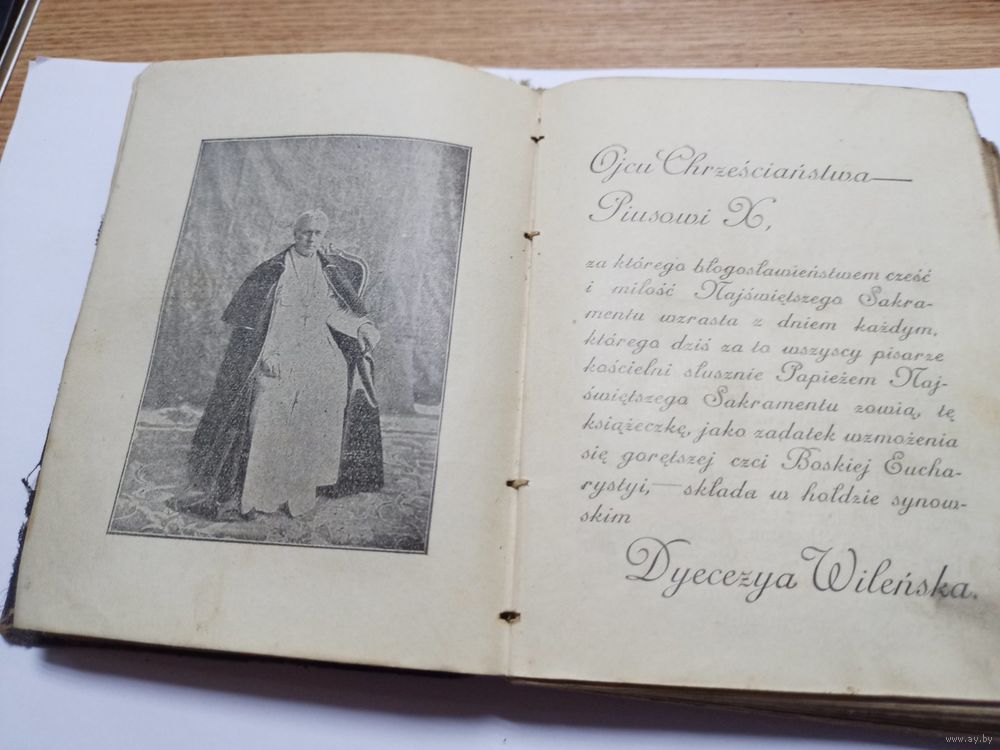 Ojcu Chrześciaństwa—
Piusowi X,
za którego błogosławieństwem cześć
i miłość Najświętszego Sakra-
mentu wzrasta z dniem każdym,
którego dziś za to wszyscy pisarze
kościelni słusznie Papieżem Naj-
świętszego Sakramentu zowią, tę
książeczkę, jako zadatek wzmożenia
się gorętszej czci Boskiej Eucha-
rystyi,—składa w hołdzie synow-
skim
Dyecezya Wileńska.
www.ay.by